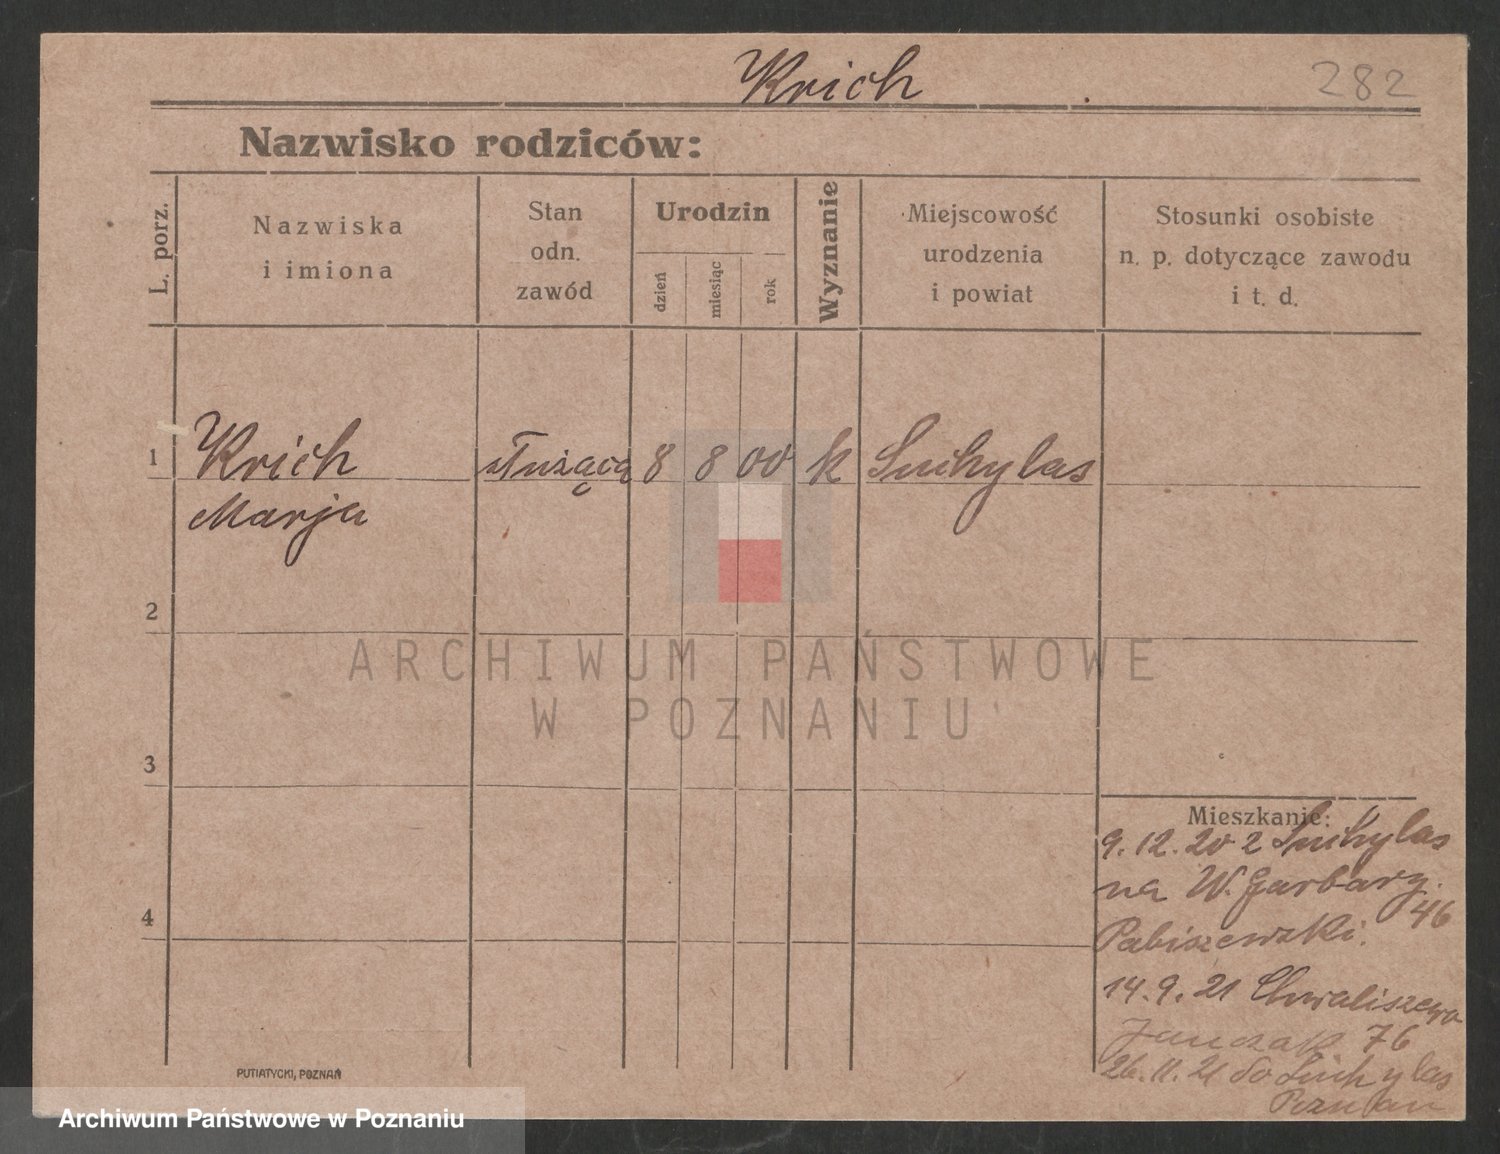 Krich
282
Nazwisko rodziców:
L. porz.
Nazwiska
i imiona
Stan
odn.
zawód
Urodzin
dzień
miesiąc
rok
Wyznanie
Miejscowość
urodzenia
i powiat
Stosunki osobiste
n. p. dotyczące zawodu
i t. d.
1 Krich służąca 8 8 00 k Suchylas
Marja
2
ARCHIWUM PAŃSTWOWE
W POZNANIU
3
Mieszkanie:
9. 12. 20 z Suchylas
na W. Garbary.
46
4
Pabiszewski.
14. 9. 21 Chwaliszewo
Janczak 76
26. 11. 21 do Suchylas
PUTIATYCKI, POZNAŃ
Archiwum Państwowe w Poznaniu